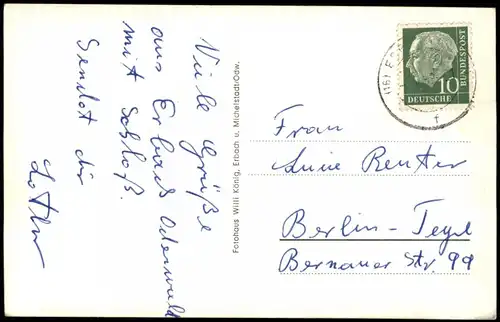 Viele Grüße
aus Erbach Odenwald
mit Schloß.
Sendet dir
Lothar
Fotohaus Willi König, Erbach u. Michelstadt/Odw.
10
DEUTSCHE
BUNDESPOST
(16)
f
Frau
Reuter
Berlin-Tegel
Bernauer Str. 99